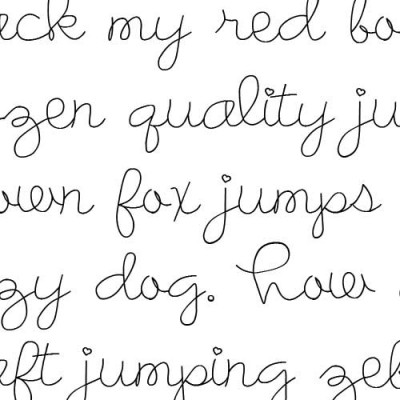 eck my red bo
zen quality ju
own fox jumps
zy dog. how
eft jumping zeb